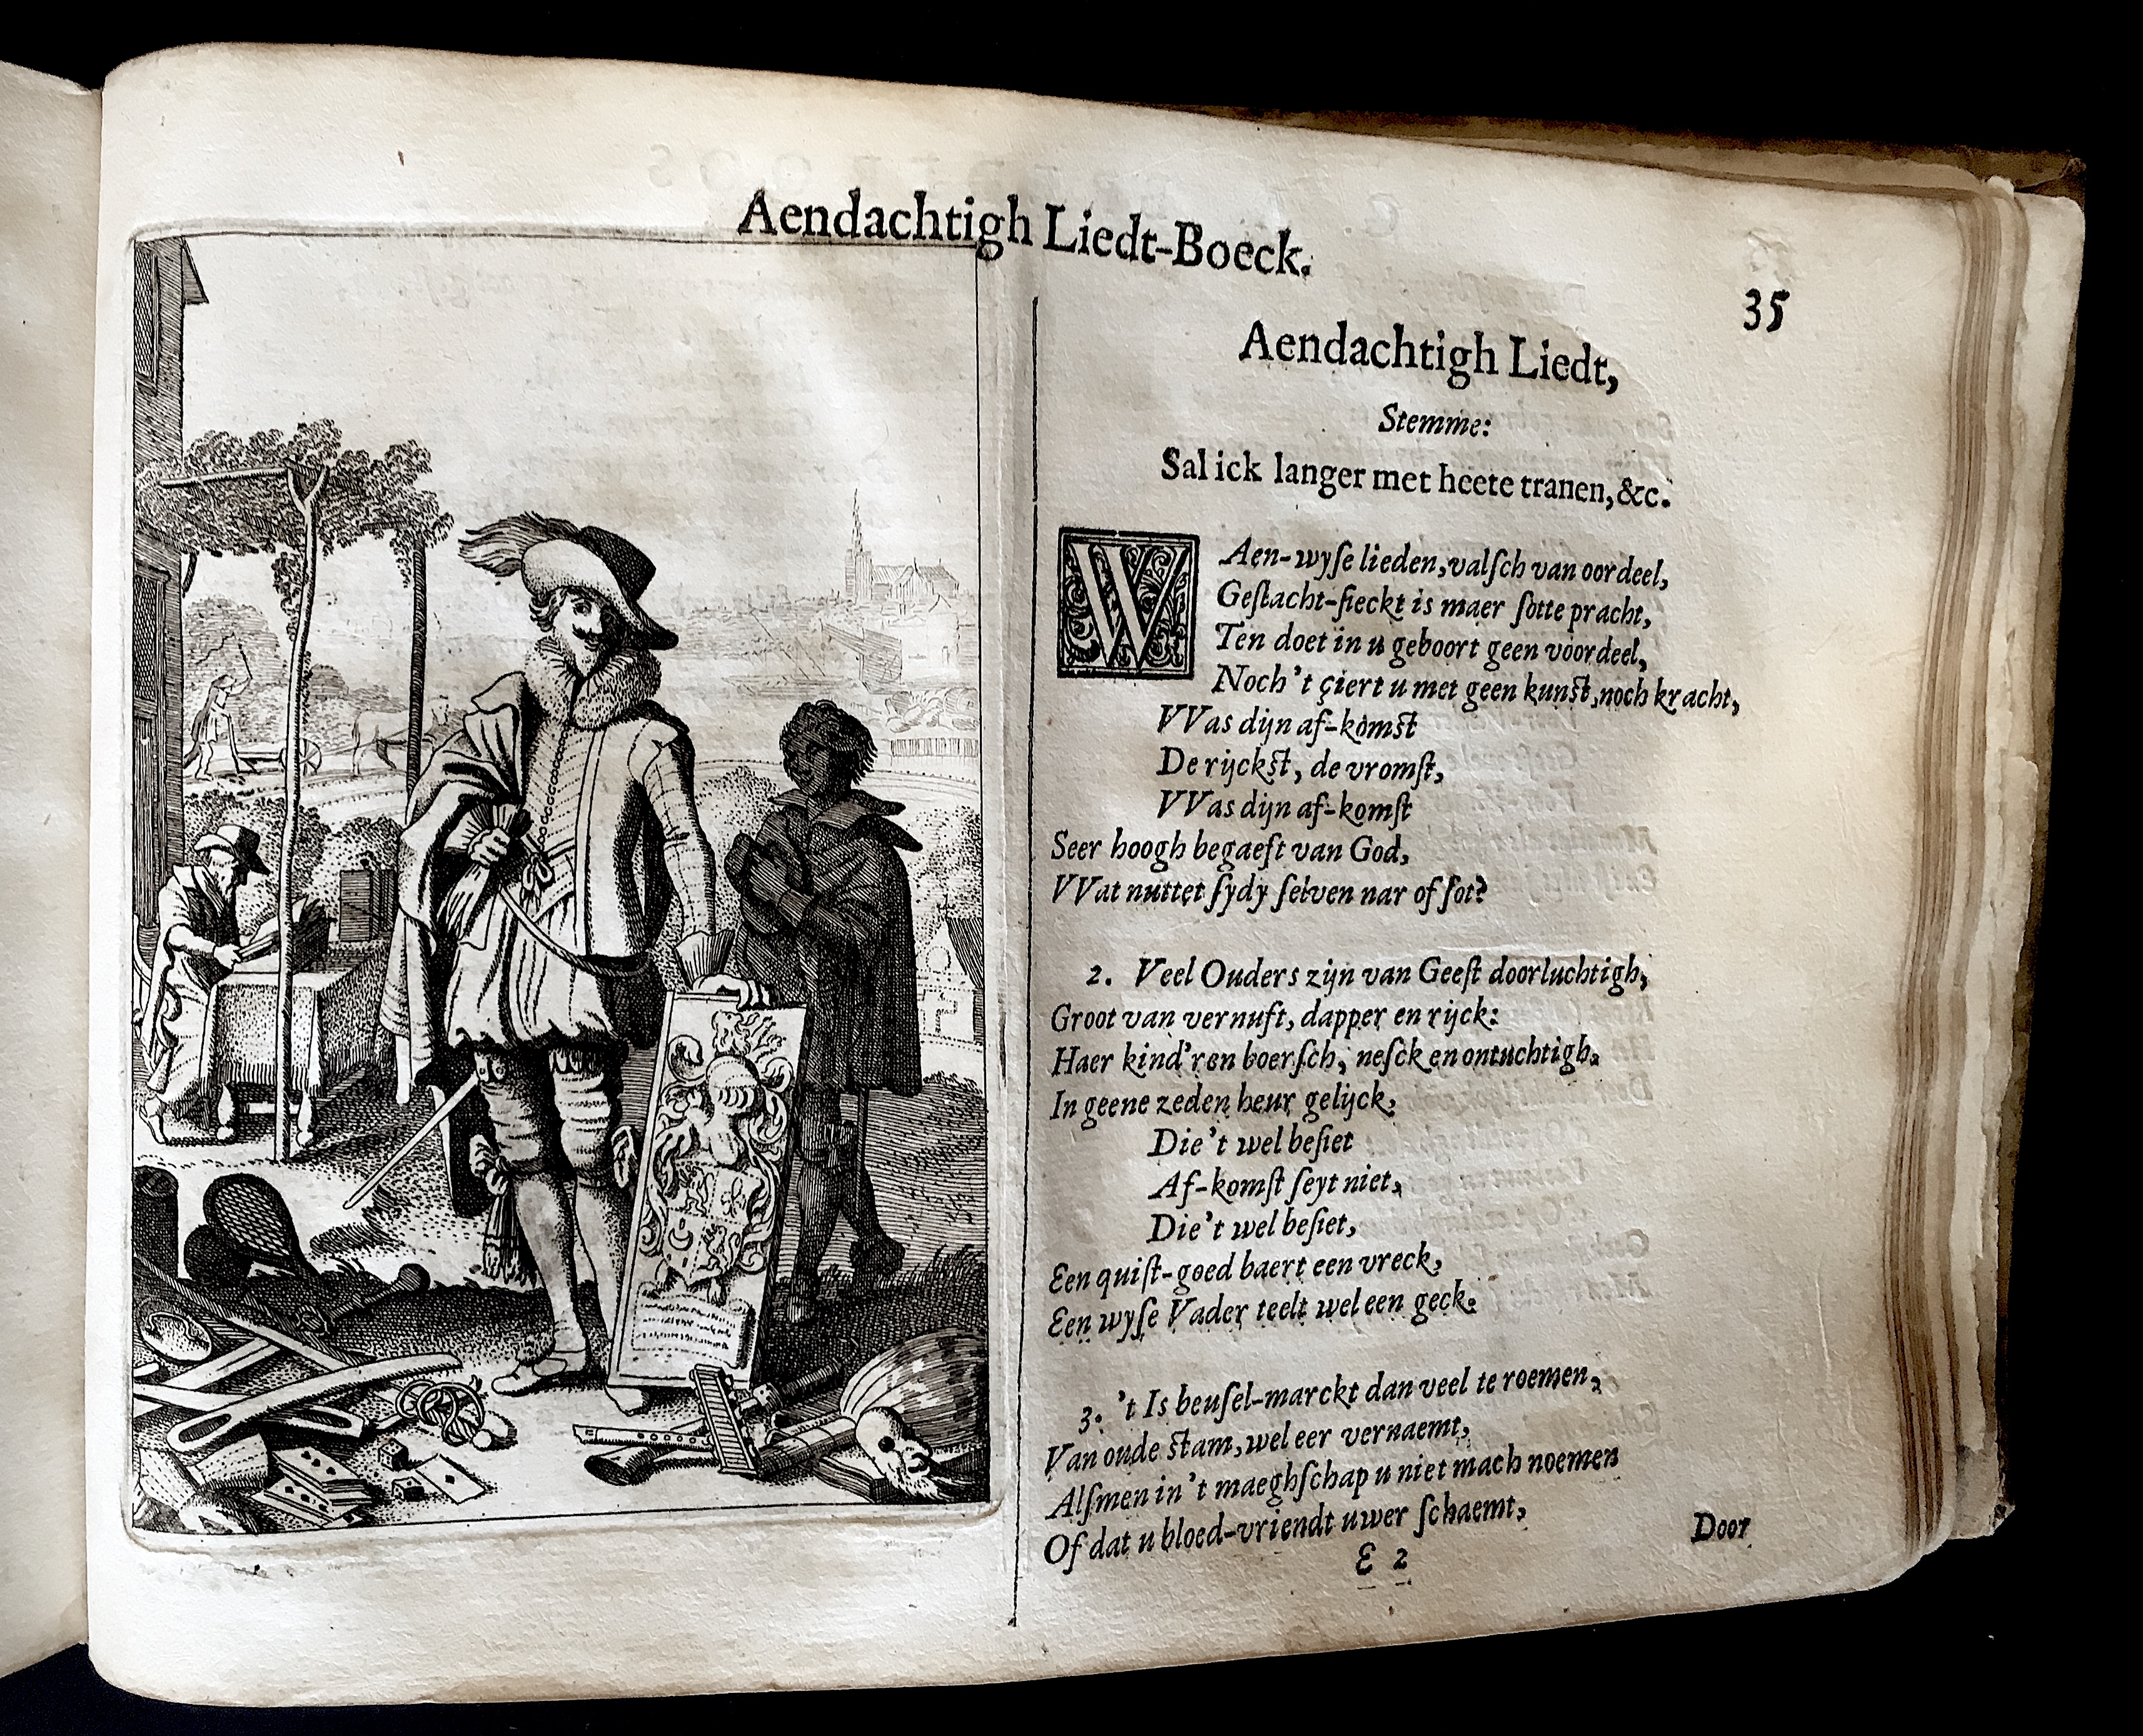 Aendachtigh Liedt-Boeck.
35
Aendachtigh Liedt,
Stemme:
Sal ick langer met heete tranen, &c.
WAen-wyſe lieden, valſch van oordeel,
Geſlacht-ſieckt is maer ſotte pracht,
Ten doet in u geboort geen voordeel,
Noch 't çiert u met geen kunſt, noch kracht,
VVas dijn af-komſt
De rijckſt, de vromſt,
VVas dijn af-komſt
Seer hoogh begaeft van God,
VVat nuttet ſydy ſelven nar of ſot?
2. Veel Ouders zijn van Geeſt doorluchtigh,
Groot van vernuft, dapper en rijck:
Haer kind'ren boerſch, neſck en ontuchtigh,
In geene zeden heur gelijck,
Die 't wel beſiet
Af-komſt ſeyt niet,
Die 't wel beſiet,
Een quiſt-goed baert een vreck,
Een wyſe Vader teelt wel een geck.
3. 't Is beuſel-marckt dan veel te roemen,
Van oude ſtam, wel eer vernaemt,
Alſmen in 't maeghſchap u niet mach noemen
Of dat u bloed-vriendt uwer ſchaemt,
E 2
Door